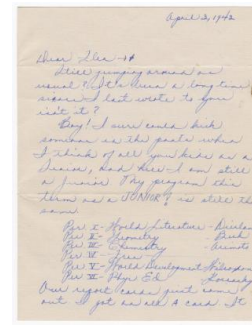 April 2, 1942
Dear
Still jumping around as
usual? It's been a long time
since I last wrote to you
isn't it?
Boy! I sure could kick
someone in the pants when
I think of all you kids as a
Senior, and here I am still
a Junior. My program this
term as a JUNIOR, is still the
same.
Per I - World Literature -
Per II - Geometry
Per III - Chemistry
Per IV - Free
Per V - World Development
Per VI - Phys Ed -
Our report cards just came
out I got an all A card. It